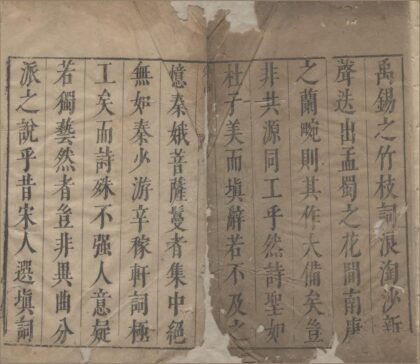 禹錫之竹枝詞浪淘沙新
聲迭出孟蜀之花間南唐
之蘭畹則其作大備矣豈
非共源同工乎然詩聖如
杜子美而填辭若不及之
憶秦娥菩薩蠻者集中絕
無如秦少游辛稼軒詞極
工矣而詩殊不強人意疑
若獨藝然者豈非異曲分
派之說乎昔宋人選填詞